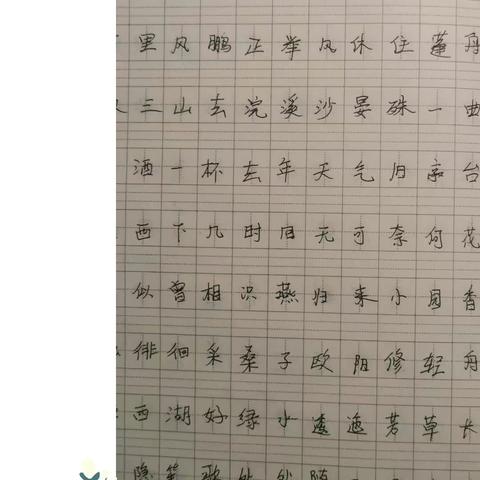 里风鹏正举风休住蓬舟
三山去浣溪沙晏殊一曲
酒一杯去年天气旧亭台
西下几时回无可奈何花
似曾相识燕归来小园香
徘徊采桑子欧阳修轻舟
西湖好绿水逶迤芳草长
隐笙歌处处随